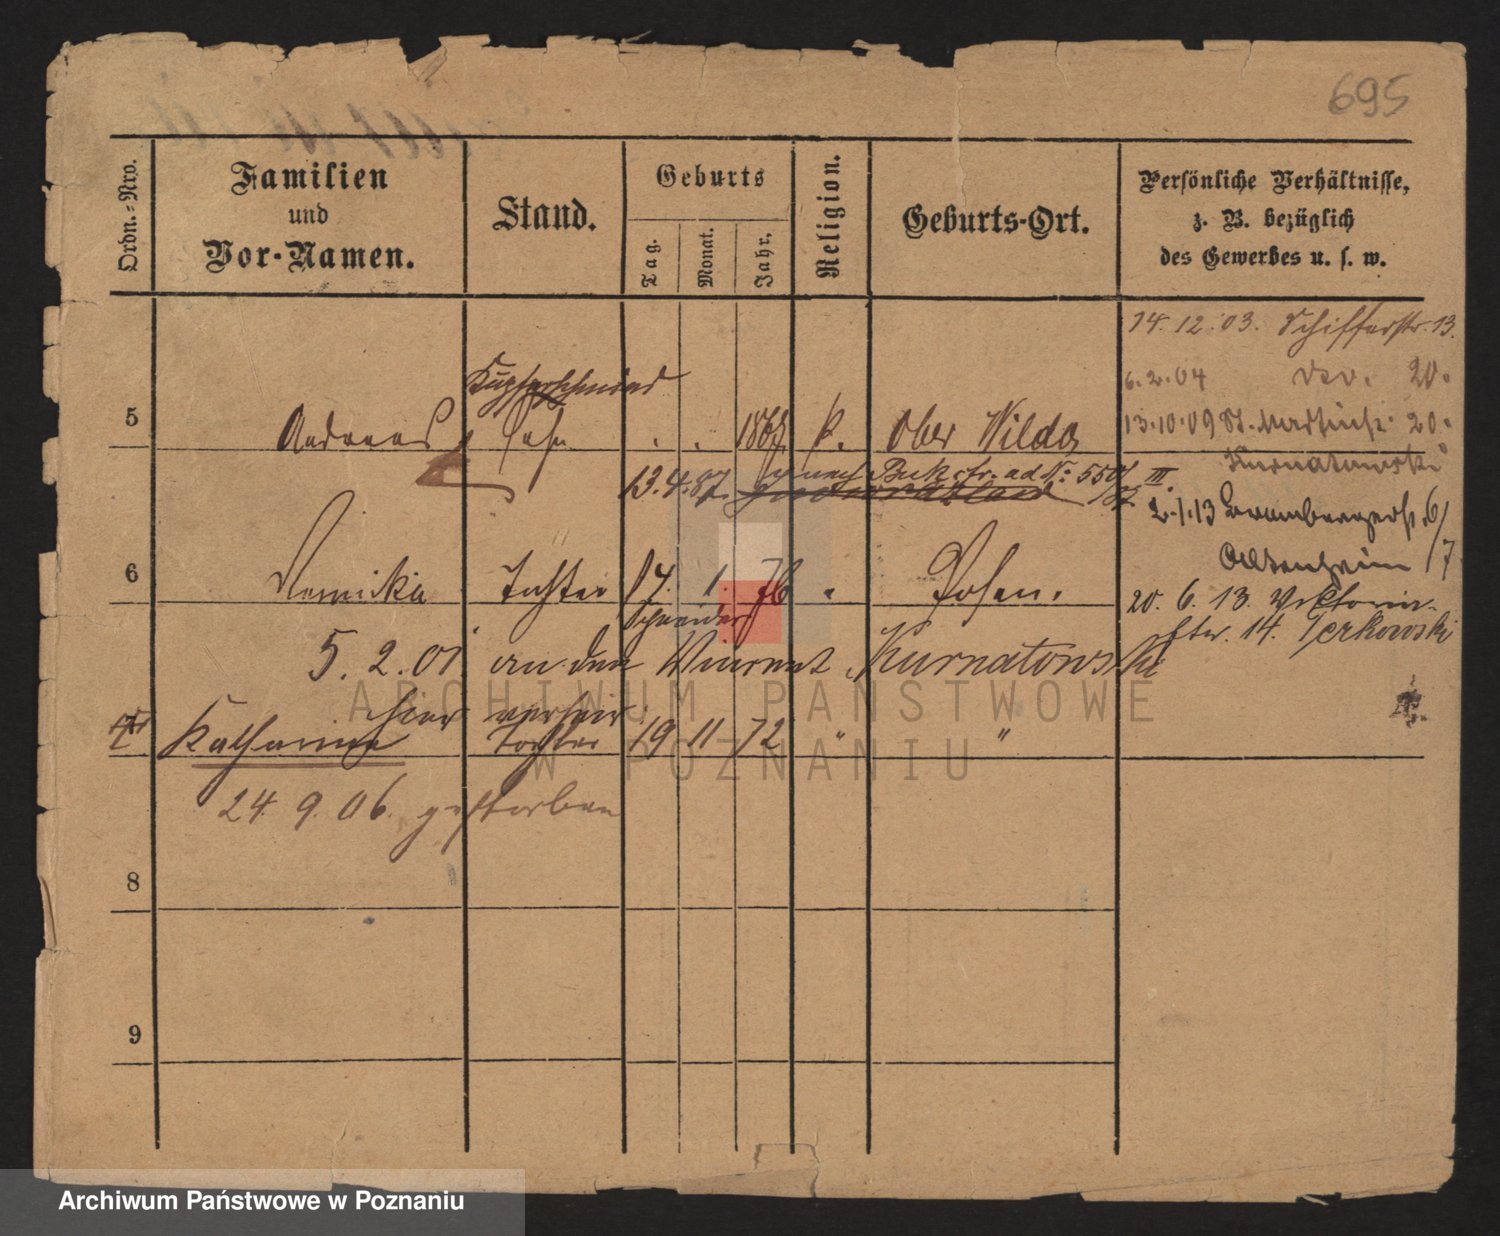 695
Ordn.-Nro.
Familien
und
Vor-Namen.
Stand.
Geburts
Tag.
Monat.
Jahr.
Religion.
Geburts-Ort.
Persönliche Verhältnisse,
z. B. bezüglich
des Gewerbes u. s. w.
14. 12. 03. Schifferstr. 13.
6. 2. 04 20.
13. 10. 09 St. Martinstr. 20.
Kurnatowski
Kupferschmied
5 Andreas Sohn 1867 k. Ober Wilda
13. 4. 87. nach Buk
2. 1. 13 Brombergerstr. 6/7
Altenheim
6 Tochter 17. 1. 76 " Posen.
20. 6. 13. Viktoria-
str. 14. Perkowski
Schneider
5. 2. 01 an den Vincent Kurnatowski
hier verheir.
7 Katharina Tochter 19 11 72 " "
24. 9. 06. gestorben
8
9
ARCHIWUM PAŃSTWOWE
W POZNANIU
Archiwum Państwowe w Poznaniu